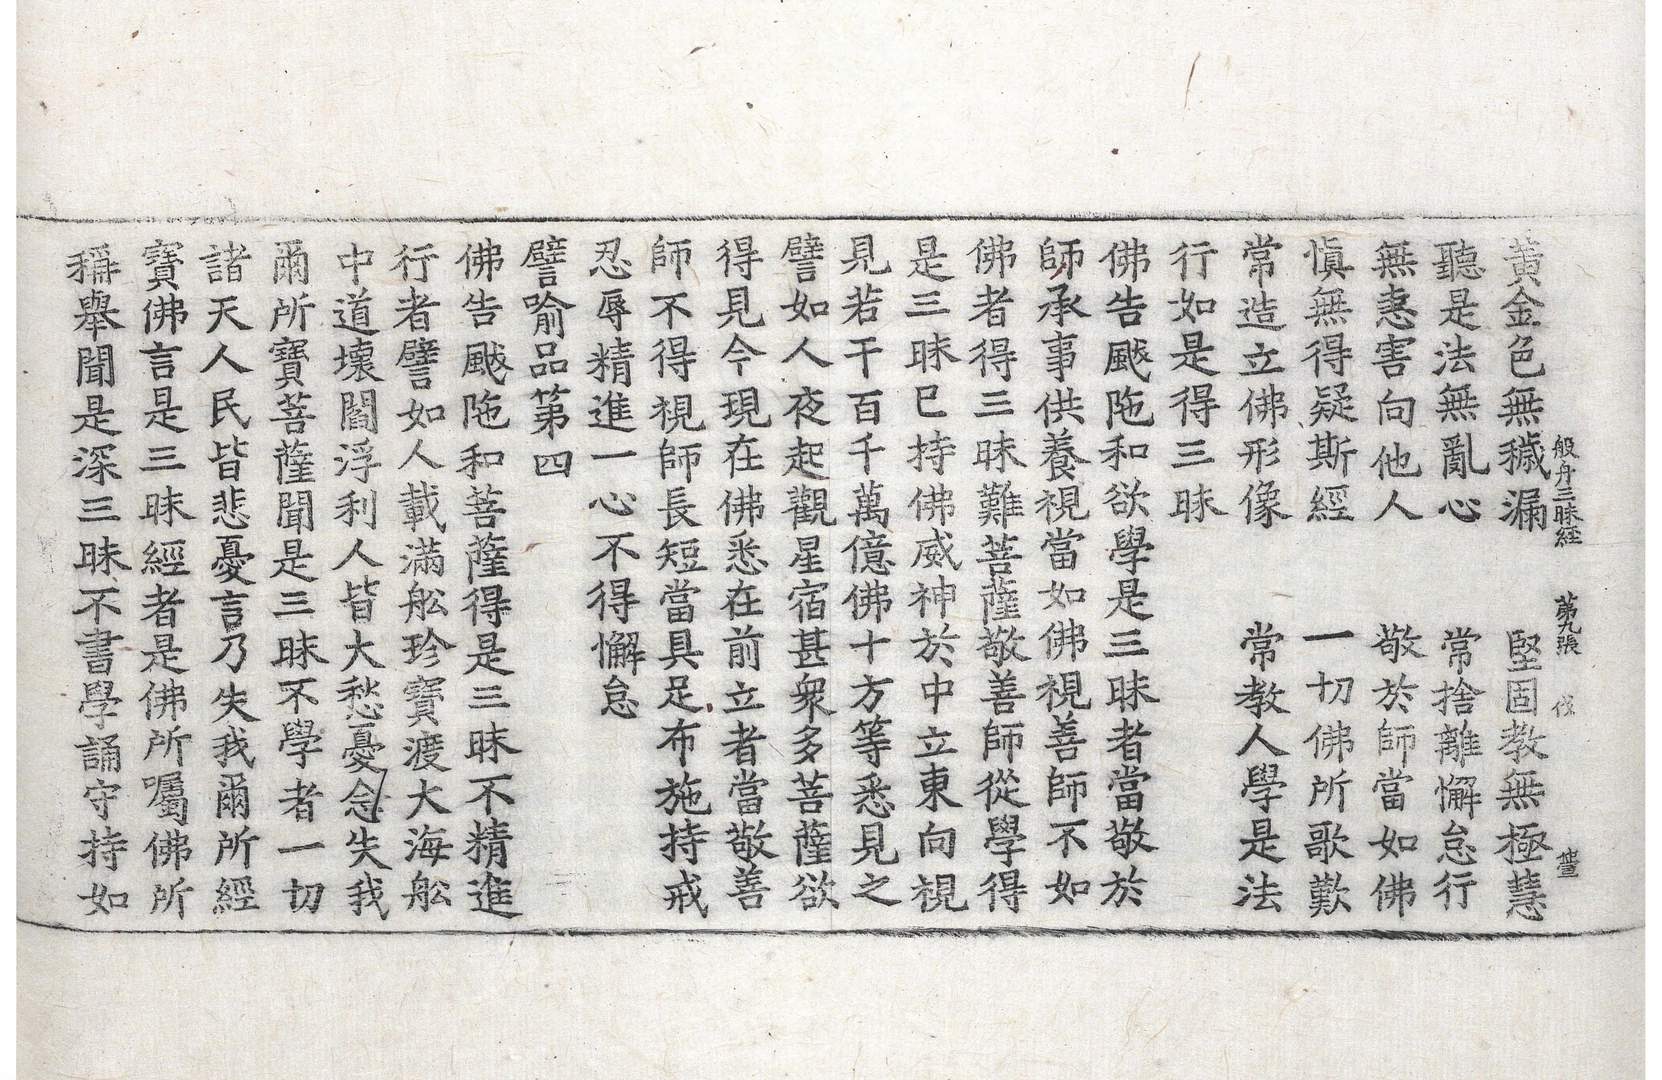 般舟三昧経　第九張　伐
黃金色無穢漏　堅固教無極慧
聽是法無亂心　常捨離懈怠行
無恚害向他人　敬於師當如佛
愼無得疑斯經　一切佛所歌歎
常造立佛形像　常教人學是法
行如是得三昧
佛告颰陁和欲學是三昧者當敬於
師承事供養視當如佛視善師不如
佛者得三昧難菩薩敬善師從學得
是三昧已持佛威神於中立東向視
見若干百千萬億佛十方等悉見之
譬如人夜起觀星宿甚衆多菩薩欲
得見今現在佛悉在前立者當敬善
師不得視師長短當具足布施持戒
忍辱精進一心不得懈怠
譬喻品第四
佛告颰陁和菩薩得是三昧不精進
行者譬如人載滿舩珍寶渡大海舩
中道壞閻浮利人皆大愁憂念失我
爾所寶菩薩聞是三昧不學者一切
諸天人民皆悲憂言乃失我爾所經
寶佛言是三昧經者是佛所囑佛所
稱舉聞是深三昧不書學誦守持如